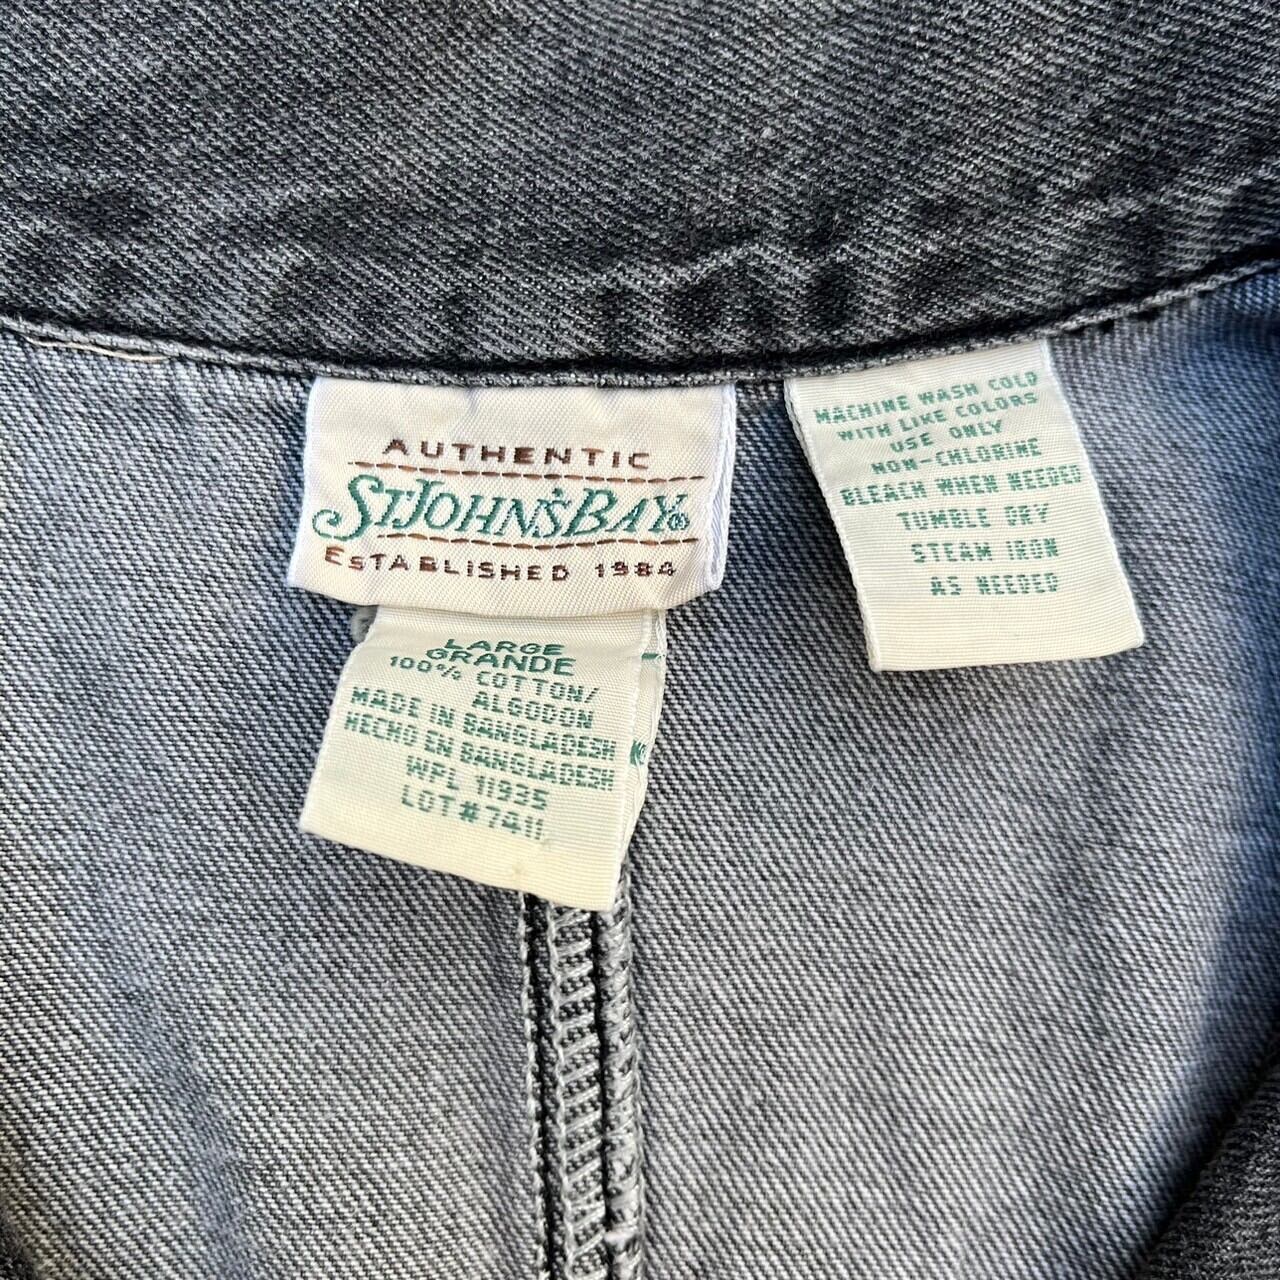 AUTHENTIC
ST. JOHN'S BAY®
ESTABLISHED 1984
LARGE
GRANDE
100% COTTON/
ALGODON
MADE IN BANGLADESH
HECHO EN BANGLADESH
WPL 11935
LOT#7411
MACHINE WASH COLD
WITH LIKE COLORS
USE ONLY
NON-CHLORINE
BLEACH WHEN NEEDED
TUMBLE DRY
STEAM IRON
AS NEEDED